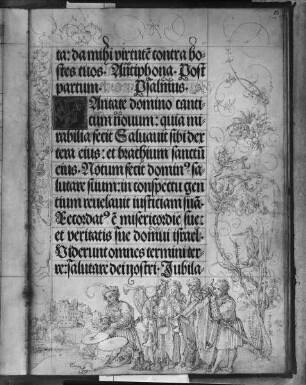 ta: da mihi virtutē contra ho-
stes tuos. Antiphona. Post
partum. Psalmus.
Cantate domino canti-
cum nouum: quia mi
rabilia fecit Saluauit sibi dex
tera eius: et brachium sanctū
eius. Notum fecit dominꝰ sa-
lutare suum: in conspectu gen
tium reuelauit iusticiam suā
Recordatꝰ ē misericordie sue:
et veritatis sue domui israel.
Viderunt omnes termini ter-
re: salutare dei nostri. Jubila